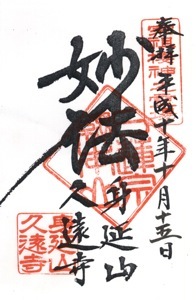 奉拝 平成十年十月十五日
妙法
身延山
久遠寺
身延山
久遠寺